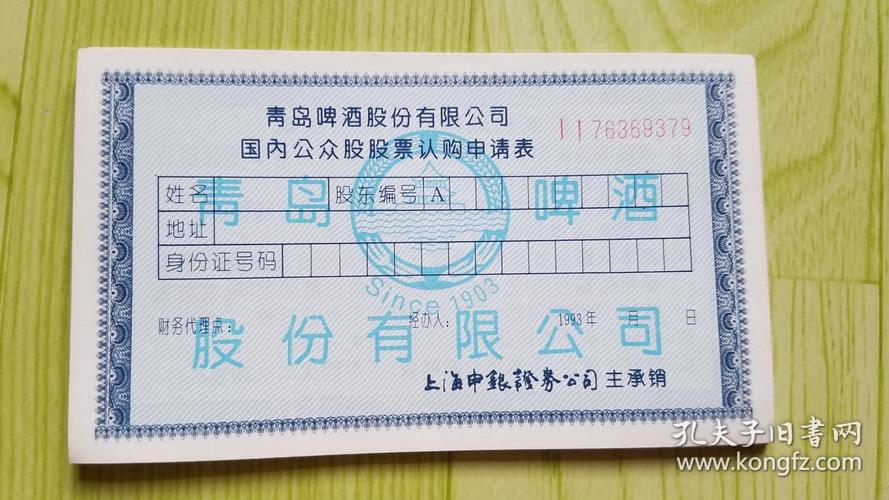 青岛啤酒股份有限公司
国内公众股股票认购申请表
II 76369379
姓名 股东编号 A
地址
身份证号码
青岛啤酒
Since 1903
股份有限公司
财务代理点： 经办人： 1993年 月 日
上海申銀證券公司 主承销
孔夫子旧书网
www.kongfz.com